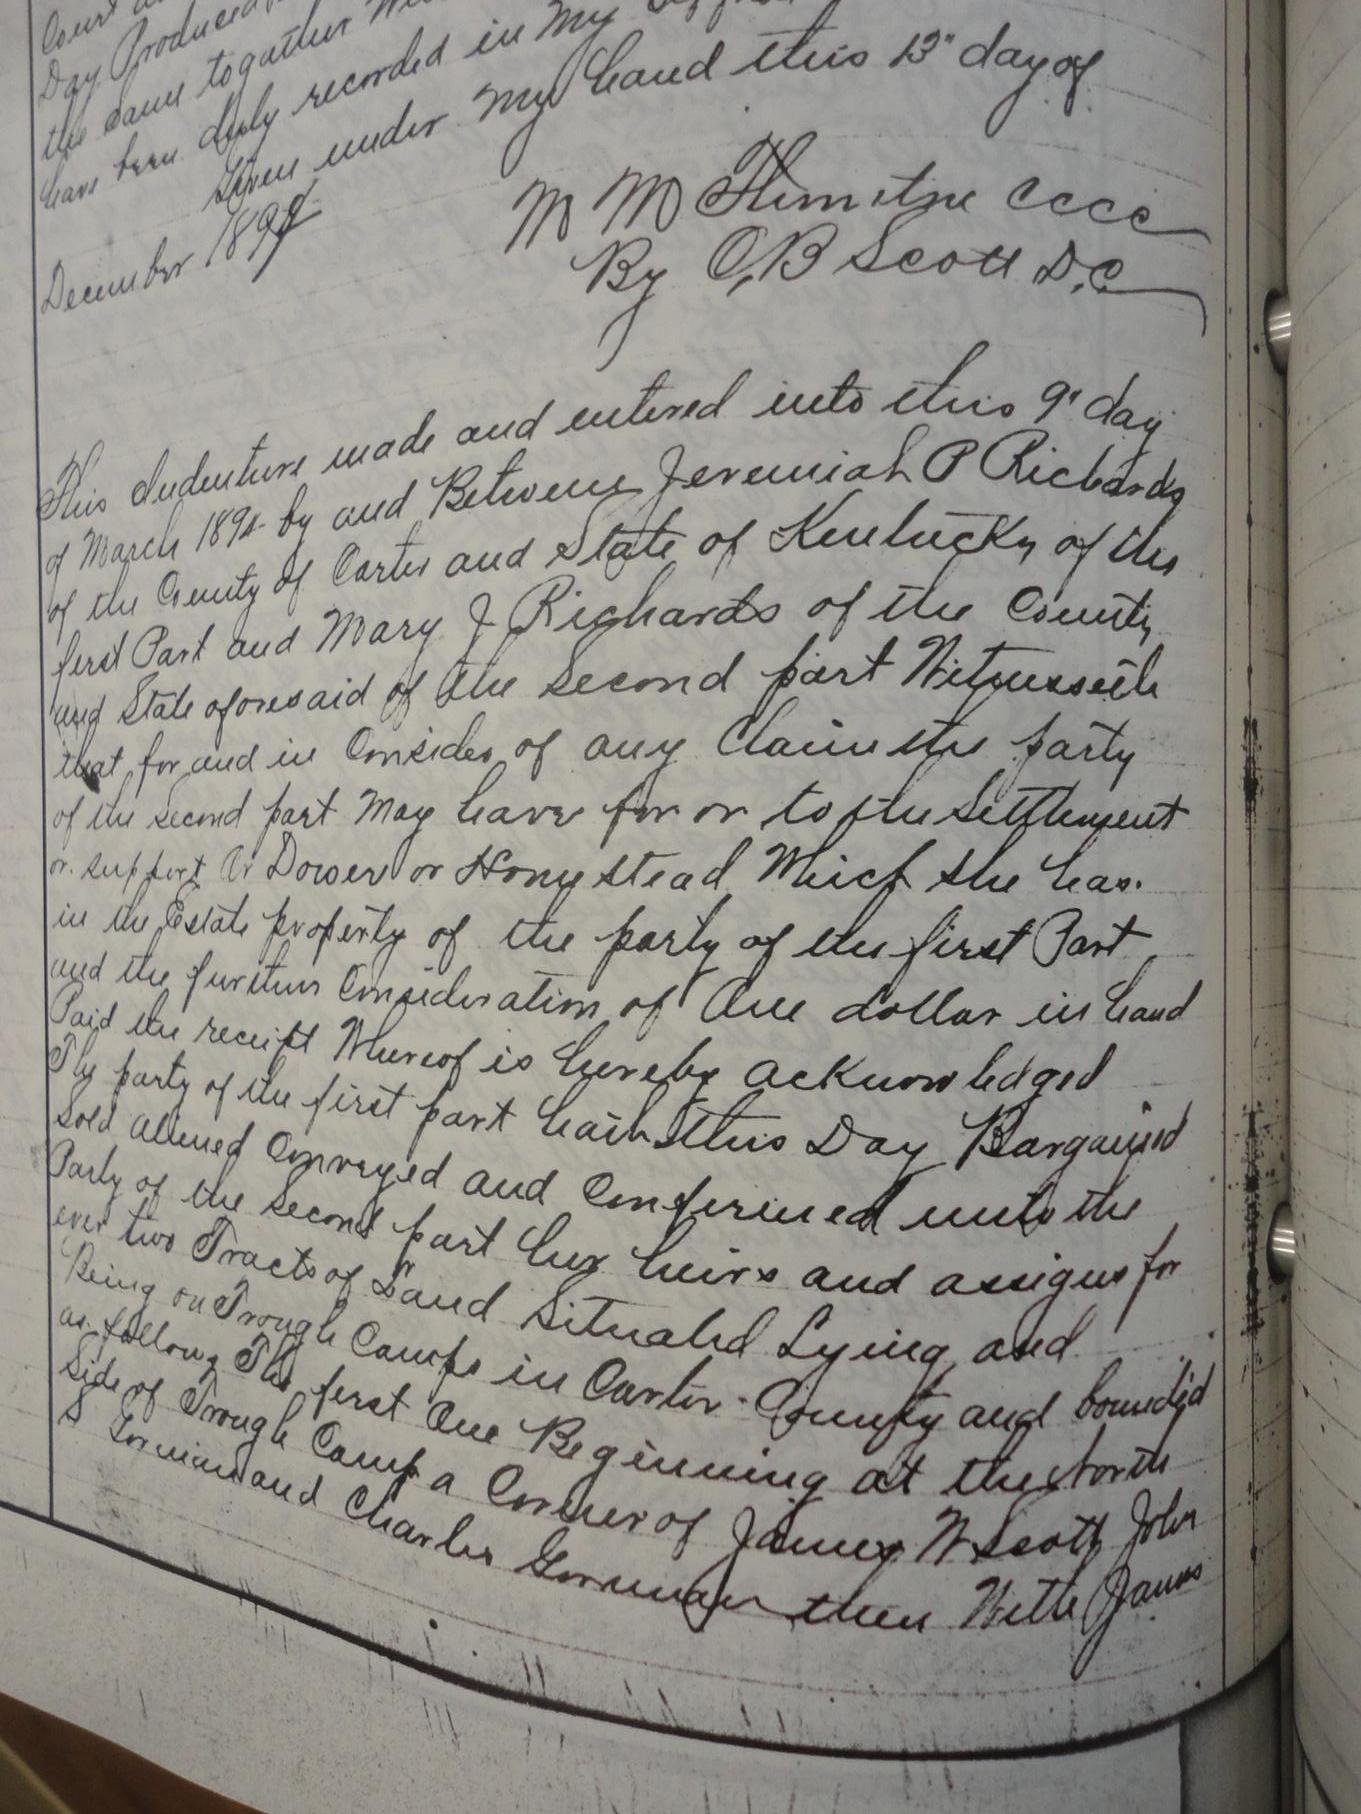 Court
Day Produced
the same together
have been duly recorded in My
Given under My hand this 13" day of
December 189
M M
By O,B Scott D.C.
This Indenture made and entered into this 9" day
of March 189 by and Between Jeremiah P Richards
of the County of Carter and State of Kentucky of the
first Part and Mary J Richards of the County
and State aforesaid of the Second part Witnesseth
that for and in Consider of any Claim the party
of the second part May have for or to the Settlement
or support Or Dower or Homestead Which she has
in the Estate property of the party of the first Part
and the further Consideration of One dollar in hand
Paid the receipt Whereof is hereby acknowledged
The party of the first part hath this Day Bargained
Sold aliened Conveyed and Confirmed unto the
Party of the second part her heirs and assigns for
ever two Tracts of Land Situated Lying and
Being on Trough Camp in Carter County and bounded
as follows The first One Beginning at the North
Side of Trough Camp a Corner of James W Scott John
S Gorman and Charles Gorman then With James